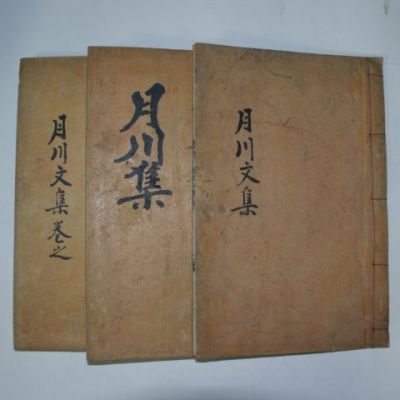 月川文集
月川集
月川文集卷之